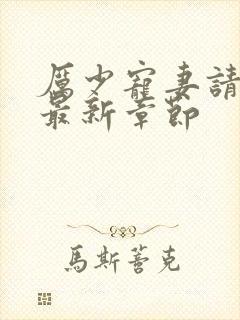 厲少寵妻請
最新章節
馬斯薈克